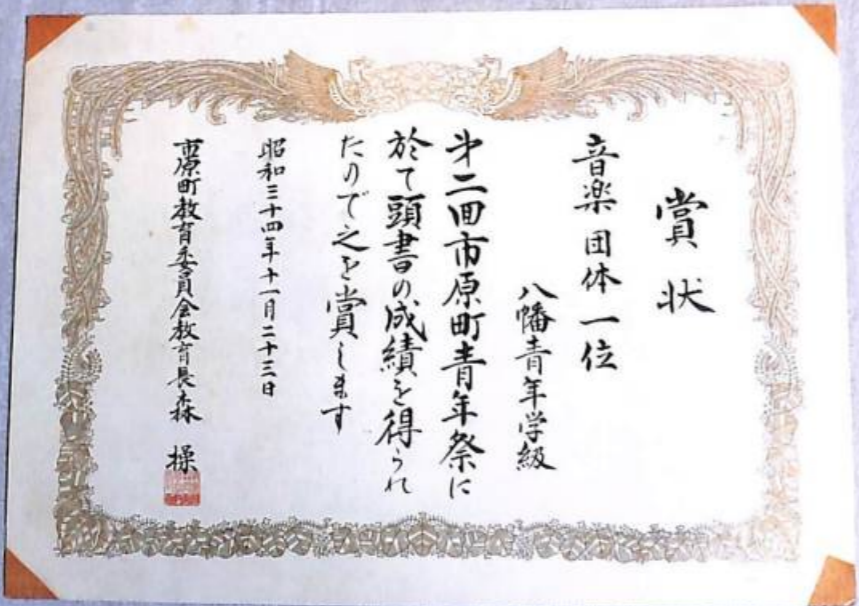 賞状
音楽団体一位
八幡青年学級
才二回市原町青年祭に
於て頭書の成績を得られ
たので之を賞します
昭和三十四年十一月二十三日
市原町教育委員会教育長森 操